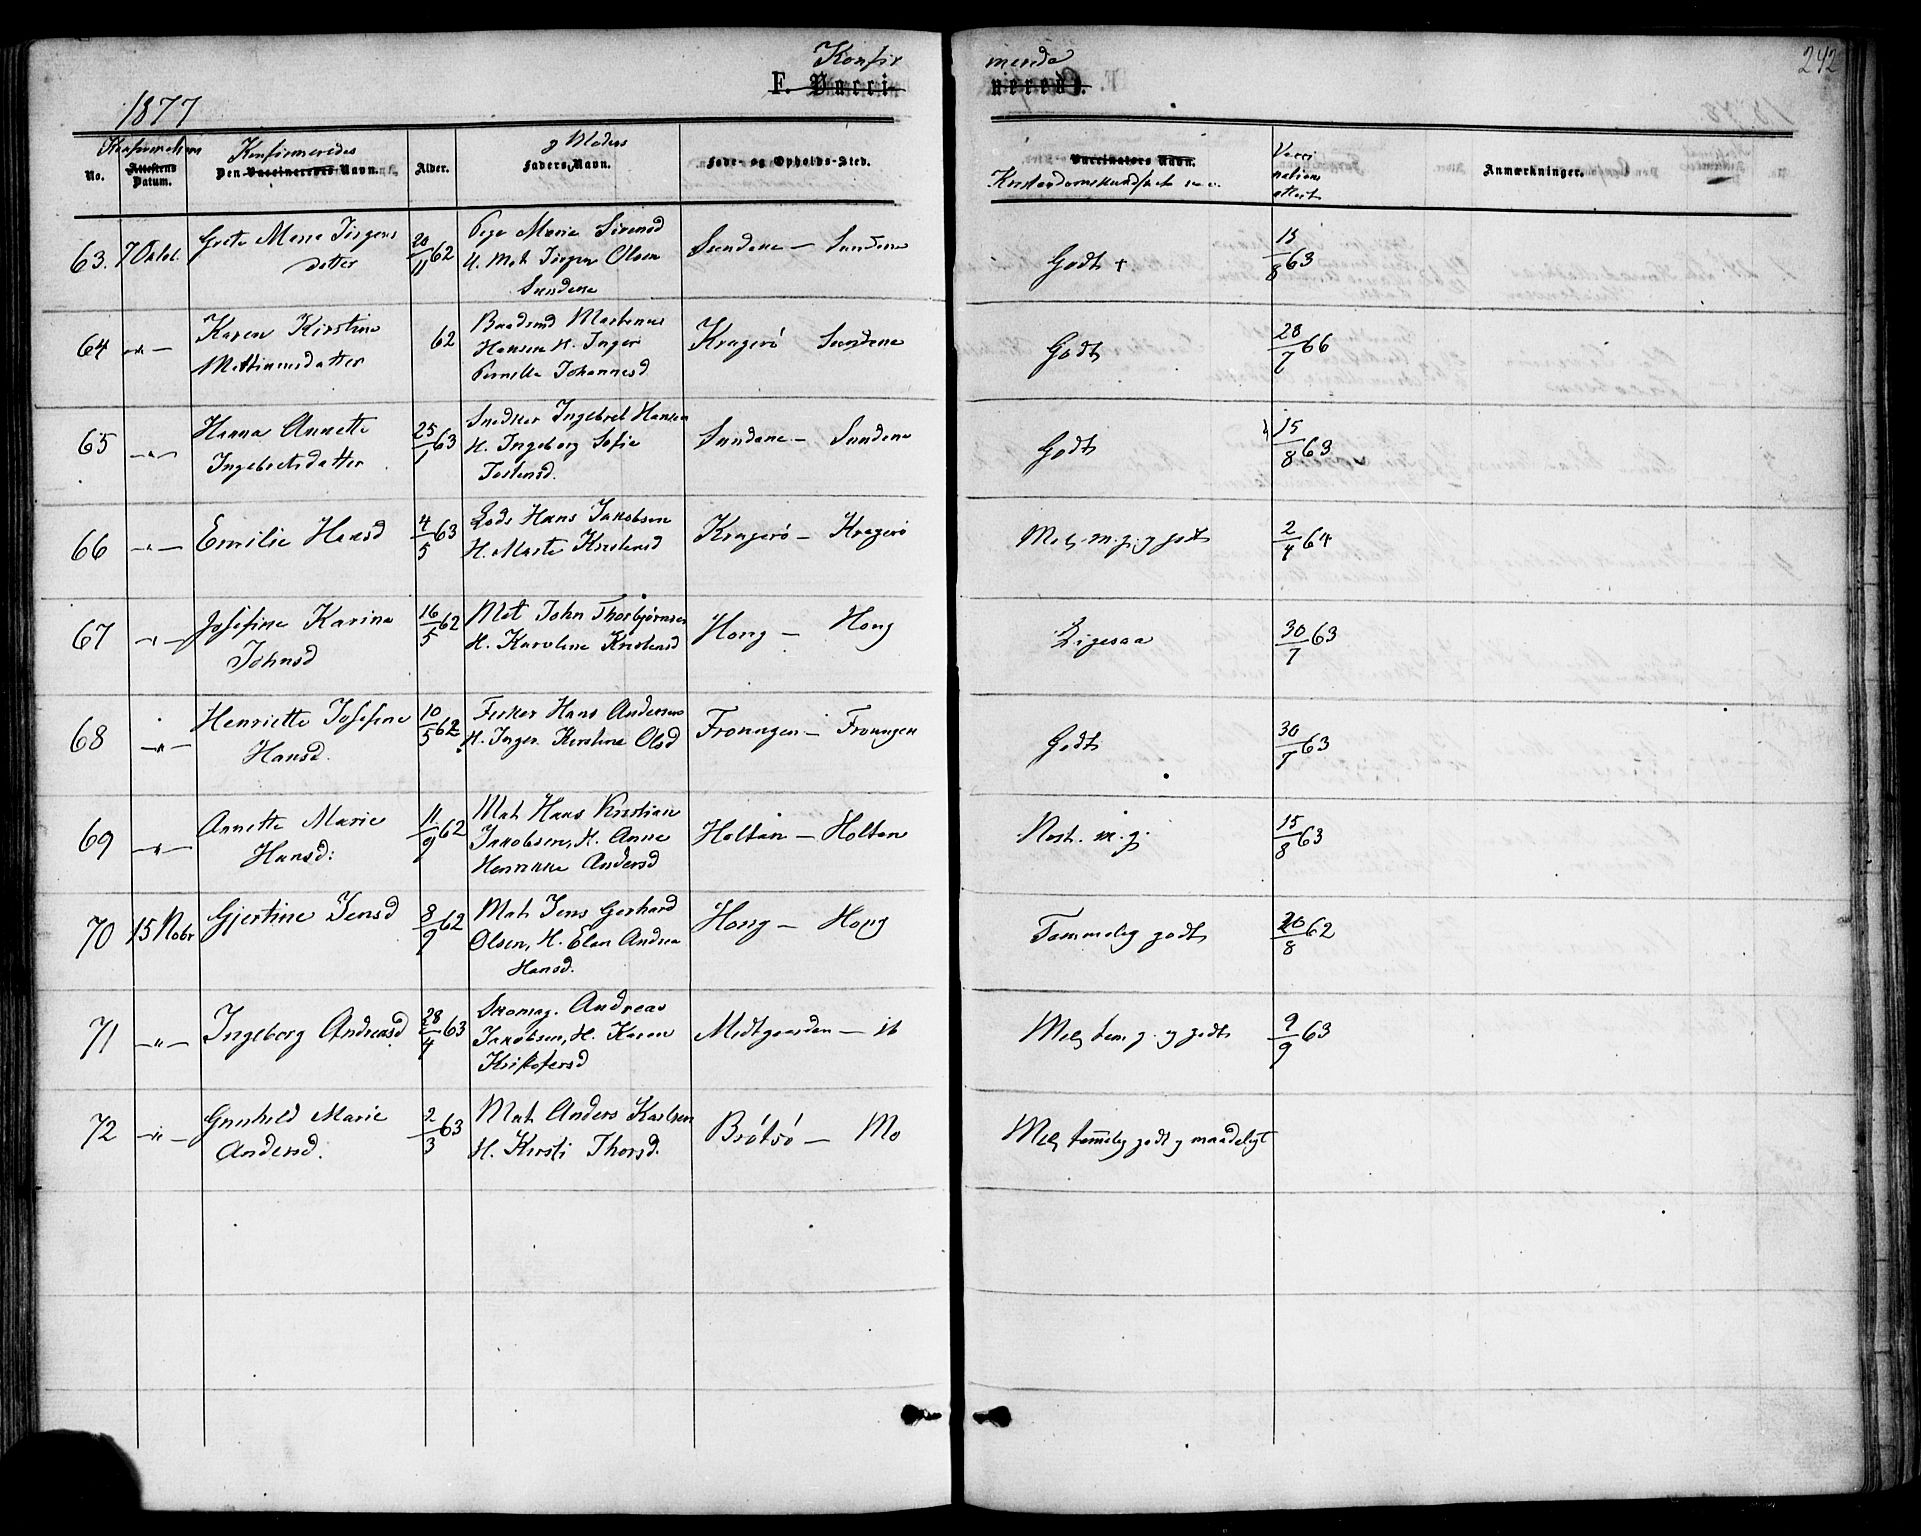 242
Konfir merede
F. Vacci- nerede.
1877
Konfirmations Konfirmeredes g Moders Vacci
No. Attestens Datum. Den Vaccineredes Navn. Alder. Faders Navn. Føde- og Opholds-Sted. Vaccinators Navn. nations Anmærkninger.
Kristendomskundskab m. v. attest
63. 7 Oktob. Grete Marie Jørgens 20/11 62 Pige Marie Sivensd Sundene — Sundene Godt + 15/8 63
datter U. Mat Jørgen Olsen
Sundene
64 -"- Karen Kirstine 62 Baadsmd Mathinus Kragerö Sundene Godt 28/7 66
Mathinusdatter Hansen H. Inger
Pernille Johannesd
65 -"- Hanna Annette 25/1 63 Snedker Ingebret Hansen Sundene — Sundene Godt 15/8 63
Ingebretsdatter H. Ingeborg Sofie
Tostensd.
66 -"- Emilie Hansd 4/5 63 Lods Hans Jakobsen Kragerö — Kragerö Mel. m. g. g godt 2/4 64
H. Marte Kristensd
67 -"- Josefine Karine 16/5 62 Mat John Thorbjørnsen Hong — Hong Ligesaa 30/7 63
Johnsd H. Karoline Kristensd
68 -"- Henriette Josefine 10/5 62 Fisker Hans Andersen Fronngen — Fronngen Godt 30/7 63
Hansd. H. Inger Kirstine Olsd
69 -"- Annette Marie 11/9 62 Mat Hans Kristian Holtan — Holtan Nest. m. g. 15/8 63
Hansd: Jakobsen, H. Anne
Henrikke Andersd
70 15 Nobr Gjertine Jensd 8/9 62 Mat Jens Gerhard Hong — Hong Temmelig godt 20/8 62
Olsen, H. Elen Andrea
Hansd.
71 -"- Ingeborg Andreasd 28/4 63 Skomag. Andreas Midtgaarden — ib Mel. tem g. g godt 9/9 63
Jakobsen, H. Karen
Kristofersd
72 -"- Gunhild Marie 2/3 63 Mat Anders Karlsen Brötsö — Mo Mel. temmelig godt g maadeligt
Andersd. H. Kirsti Thorsd.